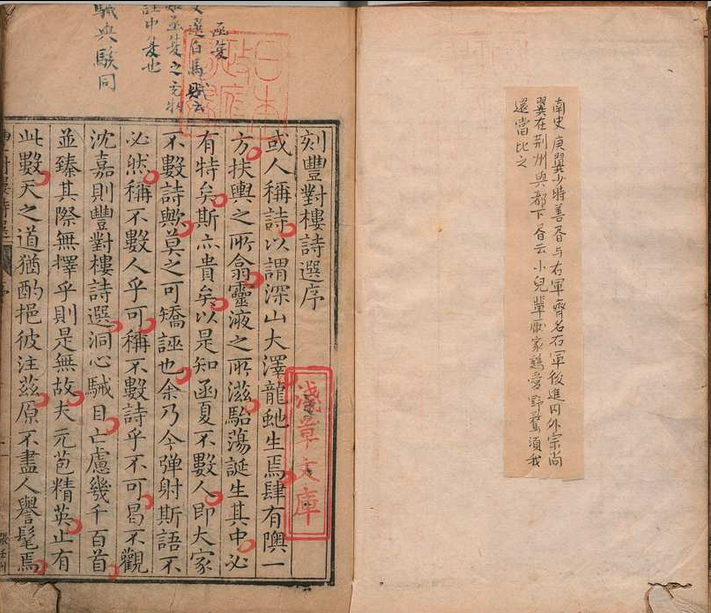 南史庾翼少時善書与右軍齊名右軍後進内外宗尚
翼在荆州與都下書云小兒輩厭家鷄愛野鶩須我
還當比之
函夏
文選白馬賦云
函夏之充牣
註中夏也
駴與駭同
日本政府圖書
刻豐對樓詩選序
或人稱詩以謂深山大澤龍虵生焉肆有隩一
方扶輿之所翕靈液之所滋駘蕩誕生其中必
有特矣斯亦貴矣以是知函夏不數人即大家
不數詩歟莫之可矯誣也余乃今弹射斯語不
必然稱不數人乎可稱不數詩乎不可曷不觀
沈嘉則豐對樓詩選洞心駴目亡慮幾千百首
並臻其際無擇乎則是無故夫元苞精英止有
此數天之道猶酌挹彼注茲原不盡人譽髦焉
淺草文庫